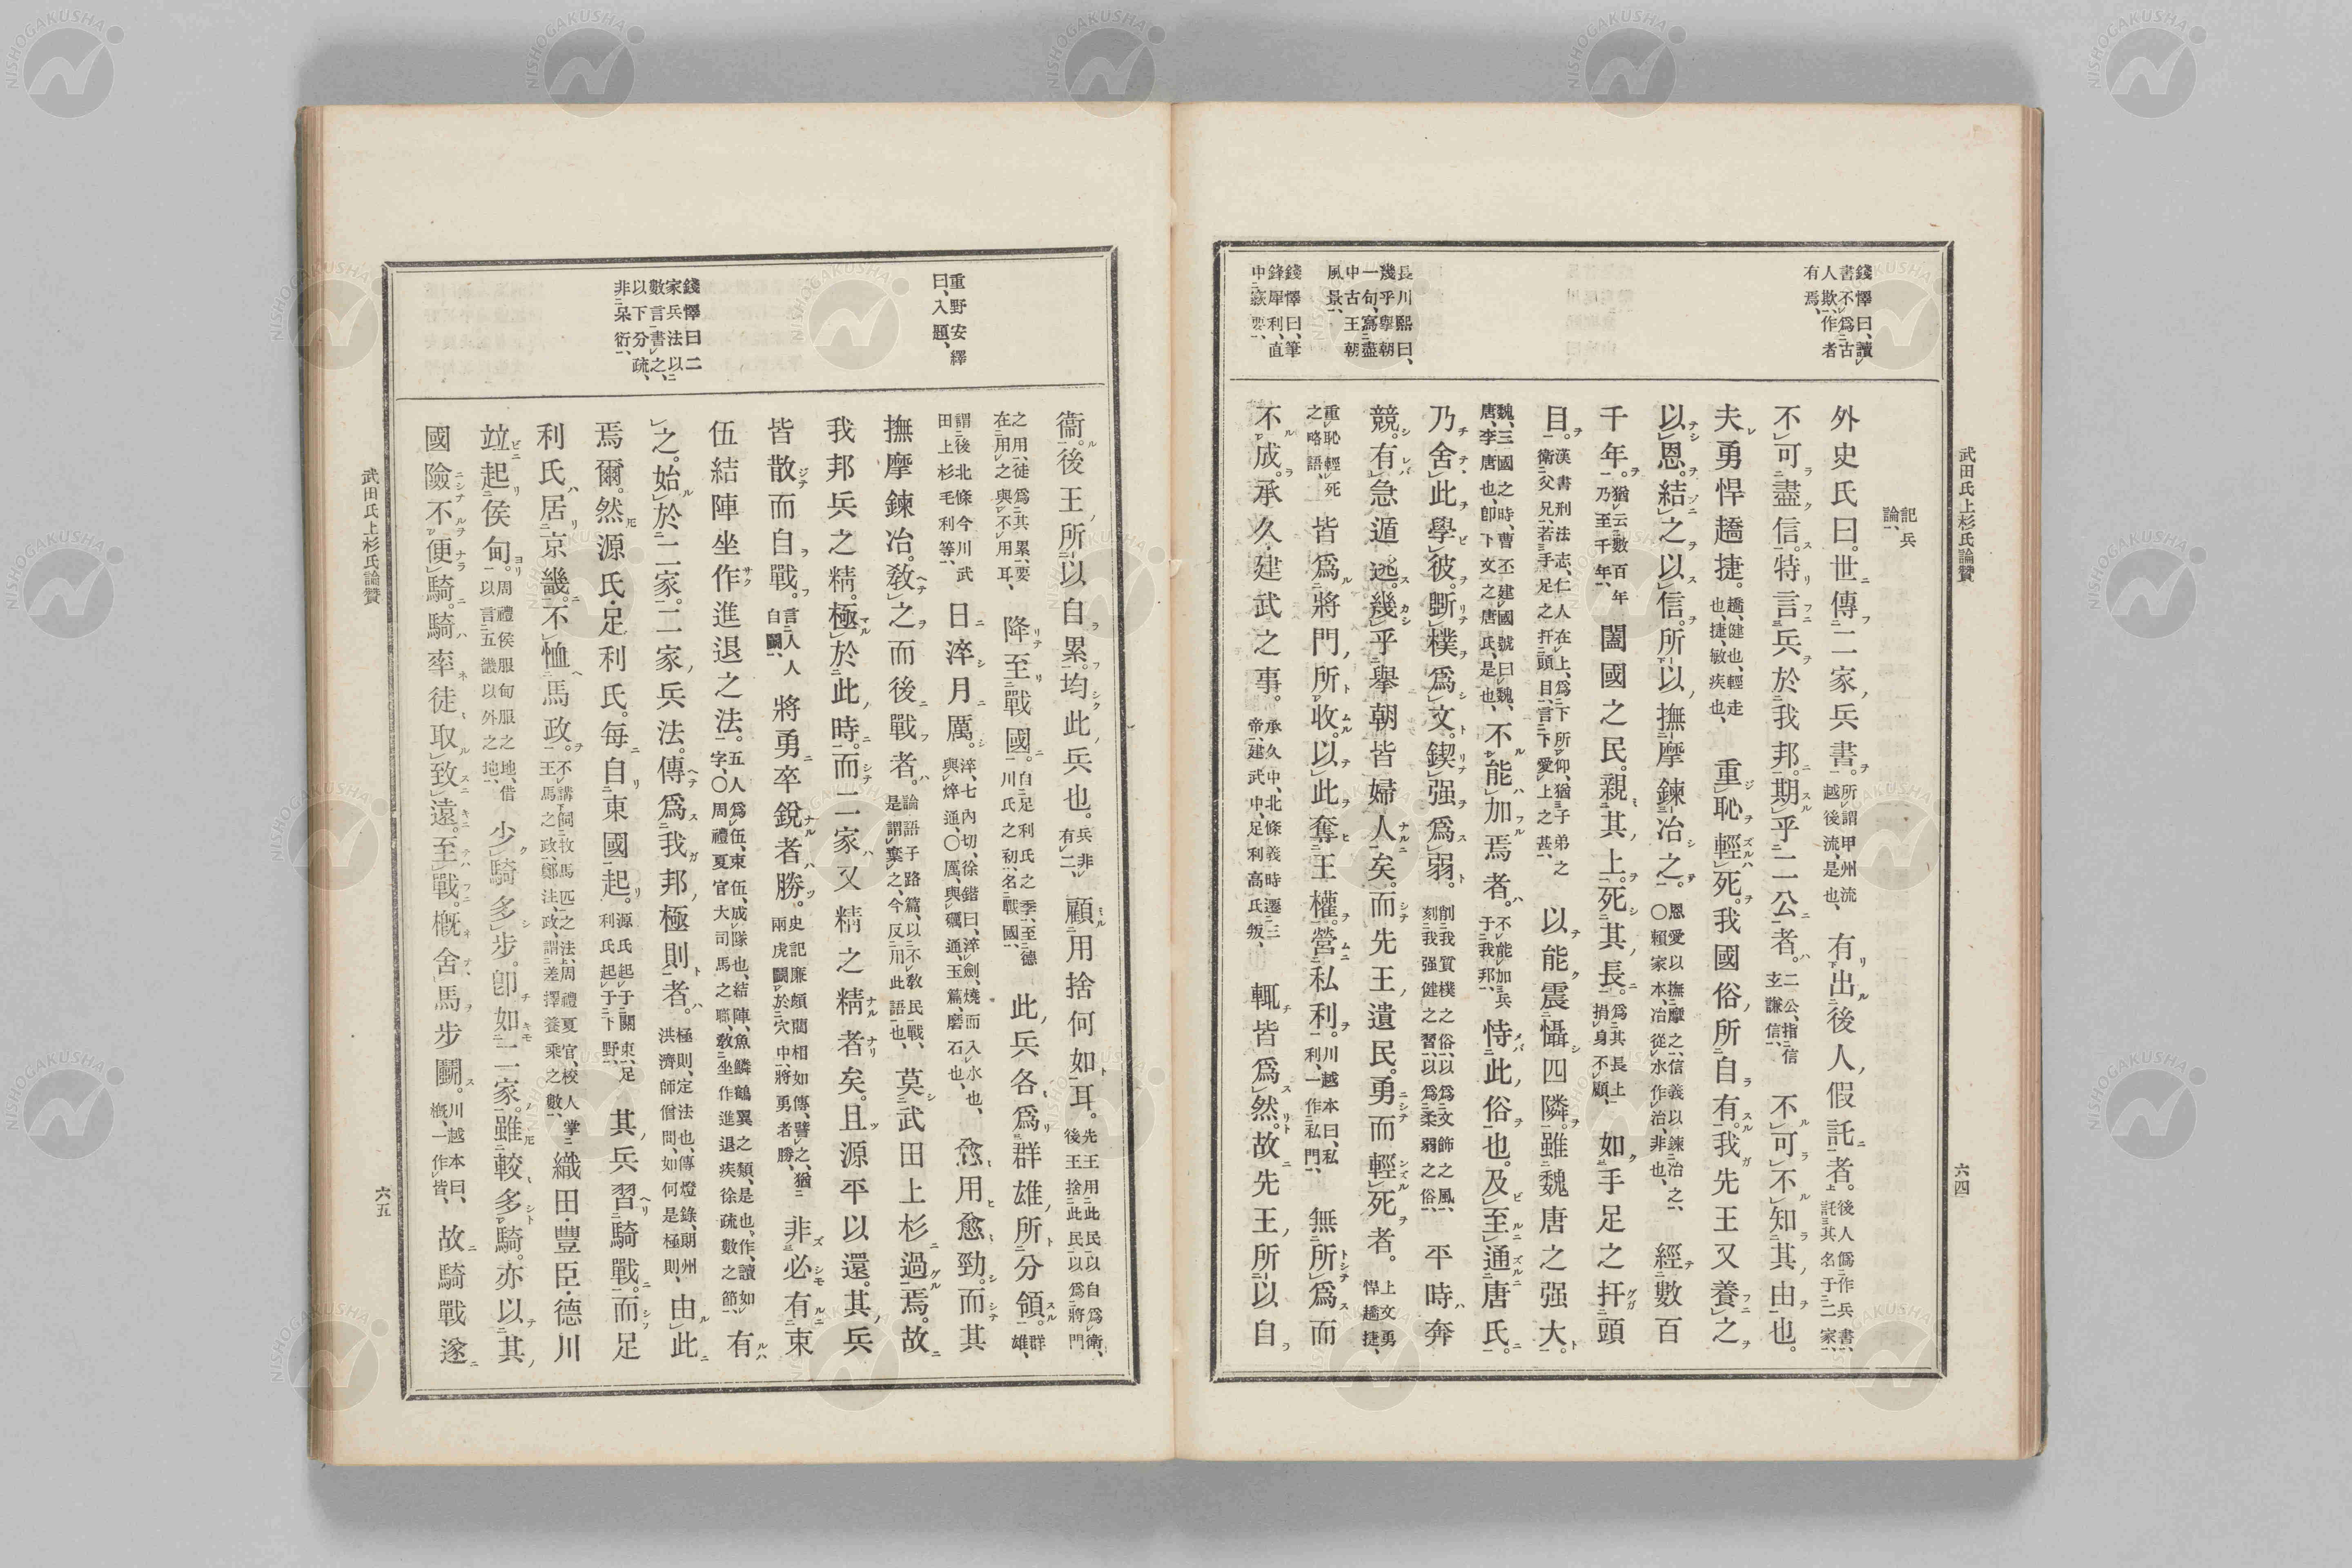 武田氏上杉氏論贊
六四
錢懌曰、讀
書不爲古
人欺、作者
有焉、
長川熙曰、
幾乎擧朝
一句、寫盡
中古王朝
風景、
錢懌曰、筆
鋒犀利、直
中竅要、
記兵
論、
外史氏曰。世傳二家兵書。所謂甲州流、越後流、是也、有出後人假託者。後人僞作兵書、託其名于二家、
不可盡信。特言兵於我邦。期乎二公者。二公、指信玄謙信、不可不知其由也。
夫勇悍趫捷。趫、健也、輕走也、捷、敏疾也、重恥輕死。我國俗所自有。我先王又養之
以恩。結之以信。所以撫摩鍊冶之。恩愛以撫摩之、信義以鍊冶之、〇賴家本、冶從水作治、非也、經數百
千年。猶云數百年乃至千年、闔國之民。親其上。死其長。爲其長上捐身不顧、如手足之扞頭
目。漢書刑法志、仁人在上、爲下所仰、猶子弟之衞父兄、若手足之扞頭目、言下愛上之甚、以能震懾四隣。雖魏唐之强大。
魏、三國之時、曹丕建國號曰魏、唐、李唐也、卽下文之唐氏、是也、不能加焉者。不能加兵于我邦、恃此俗也。及至通唐氏。
乃舍此學彼。斲樸爲文。鍥强爲弱。削我質樸之俗、以爲文飾之風、刻我强健之習、以爲柔弱之俗、平時奔
競。有急遁逃。幾乎擧朝皆婦人矣。而先王遺民。勇而輕死者。上文勇悍趫捷、
重恥輕死之略語、皆爲將門所收。以此奪王權。營私利。川越本曰、私利、一作私門、無所爲而
不成。承久・建武之事。承久中、北條義時遷三帝、建武中、足利高氏叛、輒皆爲然。故先王所以自
重野安繹
曰、入題、
錢懌曰、二
家兵法、以
數言書之、
以下分疏、
非呆衍、
衞。後王所以自累。均此兵也。兵非有二、顧用捨何如耳。先王用此民以自爲衞、後王捨此民以爲將門
之用、徒爲其累、要在用之與不用耳、降至戰國。自足利氏之季、至德川氏之初、名戰國、此兵各爲群雄所分領。群雄、
謂後北條今川武田上杉毛利等、日淬月厲。淬、七內切、徐鍇曰、淬劍、燒而入水也、與焠通、〇厲、與礪通、玉篇、磨石也、愈用愈勁。而其
撫摩鍊冶。敎之而後戰者。論語子路篇、以不敎民戰、是謂棄之、今反用此語也、莫武田上杉過焉。故
我邦兵之精。極於此時。而二家又精之精者矣。且源平以還。其兵
皆散而自戰。言人人自鬭、將勇卒銳者勝。史記廉頗藺相如傳、譬之、猶兩虎鬭於穴中、將勇者勝、非必有束
伍結陣坐作進退之法。五人爲伍、束伍、成隊也、結陣、魚鱗鶴翼之類、是也、作、讀如字、〇周禮夏官大司馬之職、敎坐作進退疾徐疏數之節、有
之。始於二家。二家兵法。傳爲我邦極則者。極則、定法也、傳燈錄、朗州洪濟師僧問、如何是極則、由此
焉爾。然源氏・足利氏。每自東國起。源氏起于關東、足利氏起于下野、其兵習騎戰。而足
利氏居京畿。不恤馬政。不講飼牧馬匹之法、周禮夏官、校人掌王馬之政、鄭注、政、謂差擇養乘之數、織田・豐臣・德川
竝起侯甸。周禮侯服甸服之地、借以言五畿以外之地、少騎多步。卽如二家。雖較多騎。亦以其
國險不便騎。騎率徒取致遠。至戰。槪舍馬步鬪。川越本曰、槪、一作皆、故騎戰遂
武田氏上杉氏論贊
六五